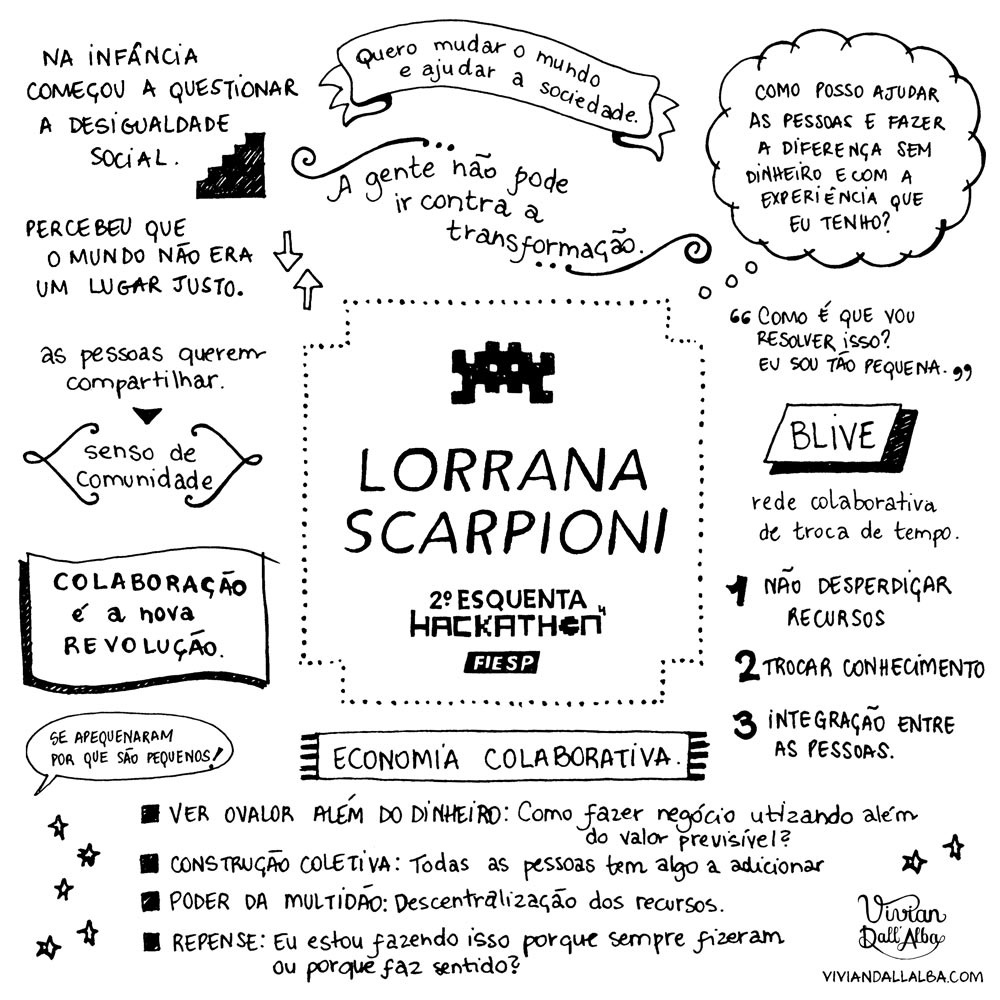 NA INFÂNCIA
COMEÇOU A QUESTIONAR
A DESIGUALDADE
SOCIAL.
PERCEBEU QUE
O MUNDO NÃO ERA
UM LUGAR JUSTO.
as pessoas querem
compartilhar.
senso de
comunidade
COLABORAÇÃO
é a nova
REVOLUÇÃO.
SE APEQUENARAM
POR QUE SÃO PEQUENOS!
Quero mudar o mundo
e ajudar a sociedade.
A gente não pode
ir contra a
transformação.
LORRANA
SCARPIONI
2º ESQUENTA
HACKATHON
FIESP
COMO POSSO AJUDAR
AS PESSOAS E FAZER
A DIFERENÇA SEM
DINHEIRO E COM A
EXPERIÊNCIA QUE
EU TENHO?
“ COMO É QUE VOU
RESOLVER ISSO?
EU SOU TÃO PEQUENA. ”
BLIVE
rede colaborativa
de troca de tempo.
1 NÃO DESPERDIÇAR
RECURSOS
2 TROCAR CONHECIMENTO
3 INTEGRAÇÃO ENTRE
AS PESSOAS.
ECONOMIA COLABORATIVA.
VER OVALOR ALÉM DO DINHEIRO: Como fazer negócio utizando além
do valor previsível?
CONSTRUÇÃO COLETIVA: Todas as pessoas tem algo a adicionar
PODER DA MULTIDÃO: Descentralização dos recursos.
REPENSE: Eu estou fazendo isso porque sempre fizeram
ou porque faz sentido?
Vivian
Dall'Alba
VIVIANDALLALBA.COM